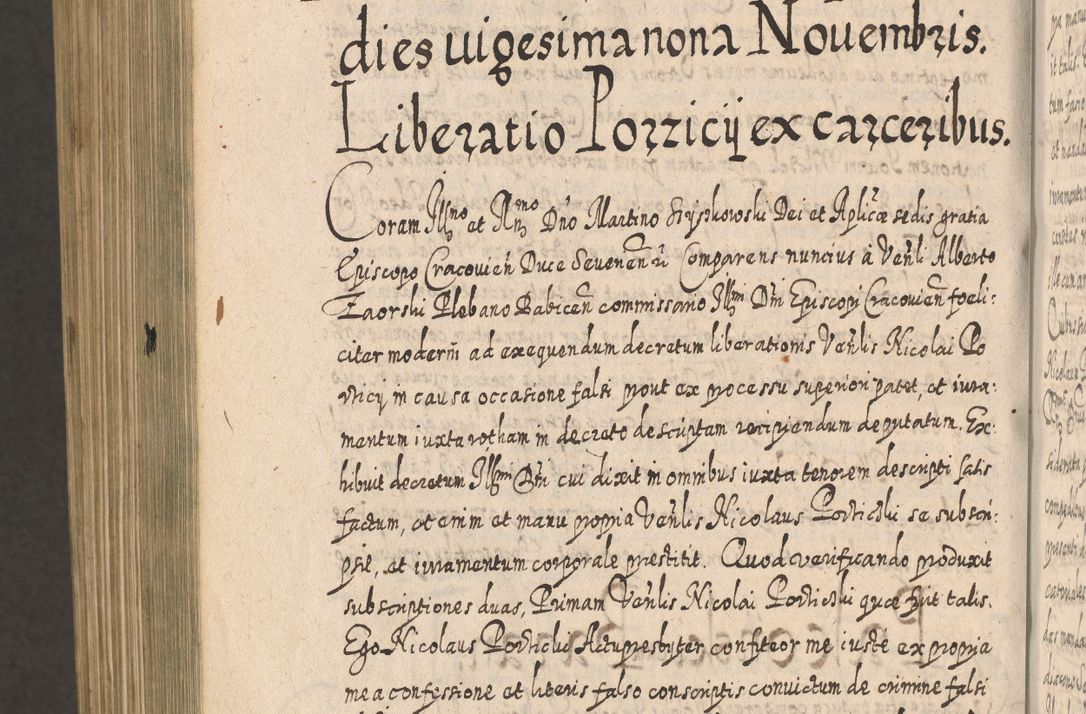 dies uigesima nona Nouembris.
Liberatio Porzicij ex carceribus.
Coram Illmo et Rmo Dno Martino Szyszkowski Dei et Aplicæ sedis gratia
Episcopo Cracovien Duce Severien Comparens nuncius à Venli Alberto
Zaorski Plebano Babicen commissario Illmi Dni Episcopi Cracovien foeli:
citer moderni ad exequendum decretum liberationis Venlis Nicolai Po
rticij in causa occasione falsi prout ex processu superiori patet, et iura:
mentum iuxta rotham in decreto descriptam recipiendum deputatum. Ex:
hibuit decretum Illmi Dni cui dixit in omnibus iuxta tenorem descripti satis
factum, et enim et manu propria Venlis Nicolaus Porticzki se subscri:
psit, et iuramentum corporale prestitit. Quod verificando produxit
subscriptiones duas, Primam Venlis Nicolai Porticzki quæ fuit talis.
Ego Nicolaus Porticki Actupresbyter confiteor me iuste ex propria
mea confessione et literis falso conscriptis convictum de crimine falsi